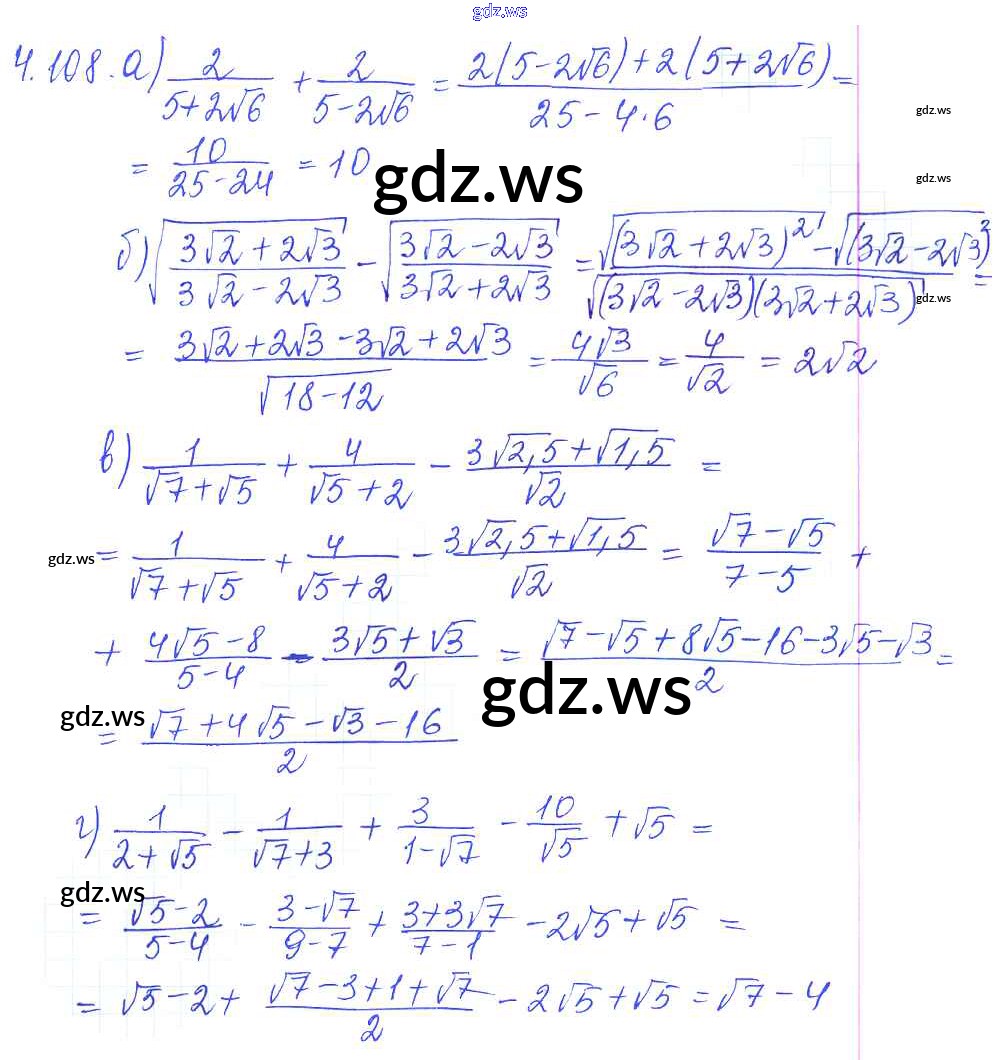 gdz.ws
4.108. а) 2/(5+2√6) + 2/(5-2√6) = (2(5-2√6)+2(5+2√6))/(25-4·6) =
gdz.ws
= 10/(25-24) = 10
gdz.ws
gdz.ws
б) √((3√2+2√3)/(3√2-2√3)) - √((3√2-2√3)/(3√2+2√3)) = (√((3√2+2√3)²) - √((3√2-2√3)²))/√((3√2-2√3)(3√2+2√3)) =
gdz.ws
= (3√2+2√3-3√2+2√3)/√(18-12) = 4√3/√6 = 4/√2 = 2√2
в) 1/(√7+√5) + 4/(√5+2) - (3√2,5+√1,5)/√2 =
gdz.ws
= 1/(√7+√5) + 4/(√5+2) - (3√2,5+√1,5)/√2 = (√7-√5)/(7-5) +
+ (4√5-8)/(5-4) - (3√5+√3)/2 = (√7-√5+8√5-16-3√5-√3)/2 =
gdz.ws
gdz.ws
= (√7+4√5-√3-16)/2
г) 1/(2+√5) - 1/(√7+3) + 3/(1-√7) - 10/√5 + √5 =
gdz.ws
= (√5-2)/(5-4) - (3-√7)/(9-7) + (3+3√7)/(7-1) - 2√5+√5 =
= √5-2+ (√7-3+1+√7)/2 - 2√5+√5 = √7-4